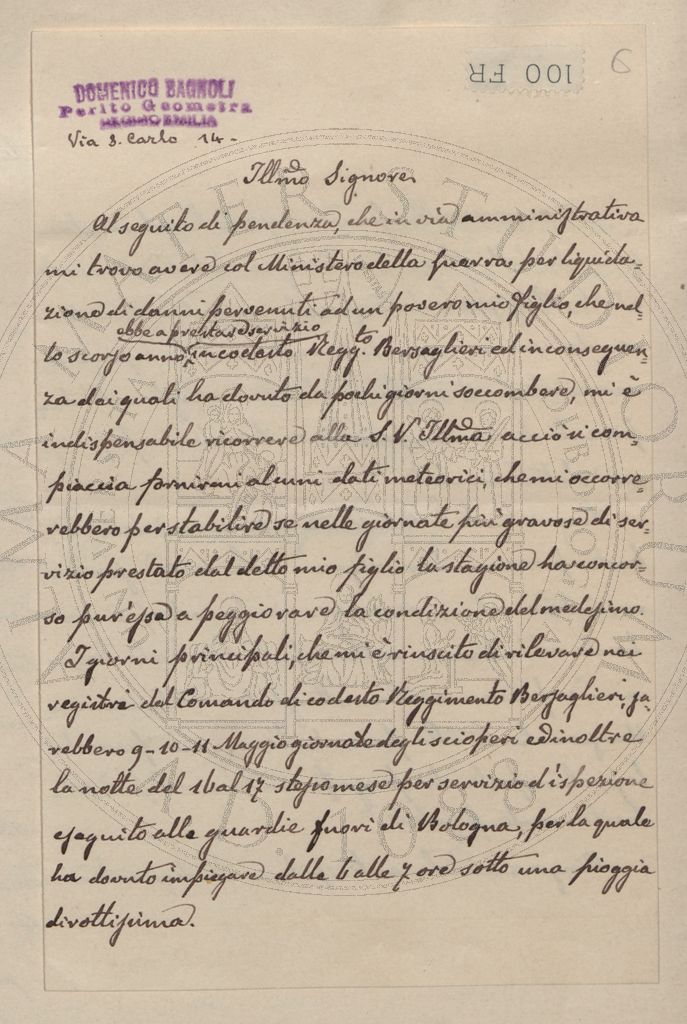 100 FR
6
DOMENICO BAGNOLI
Perito Geometra
REGGIO EMILIA
Via S. Carlo 14-
Illmo Signore
Al seguito di pendenza, che in via amministrativa
mi trovo avere col Ministero della Guerra per liquida=
zione di danni pervenuti ad un povero mio figlio, che nel=
ebbe a prestare servizio
lo scorso anno, in codesto Regg.to Bersaglieri ed in conseguen=
za dei quali ha dovuto da pochi giorni soccombere, mi è
indispensabile ricorrere alla S. V. Illma acciò si com=
piaccia fornirmi alcuni dati meteorici, che mi occorre=
rebbero per stabilire se nelle giornate più gravose di ser=
vizio prestato dal detto mio figlio la stagione ha concor=
so pur'essa a peggiorare la condizione del medesimo.
I giorni principali, che mi è riuscito di rilevare nei
registri del Comando di codesto Reggimento Bersaglieri, sa=
rebbero 9-10-11 Maggio giornate degli scioperi ed inoltre
la notte del 16 al 17 stesso mese per servizio d'ispezione
eseguito alle guardie fuori di Bologna, per la quale
ha dovuto impiegare dalle 6 alle 7 ore sotto una pioggia
dirottissima.
ALMA MATER STUDIORUM
A.D. 1088